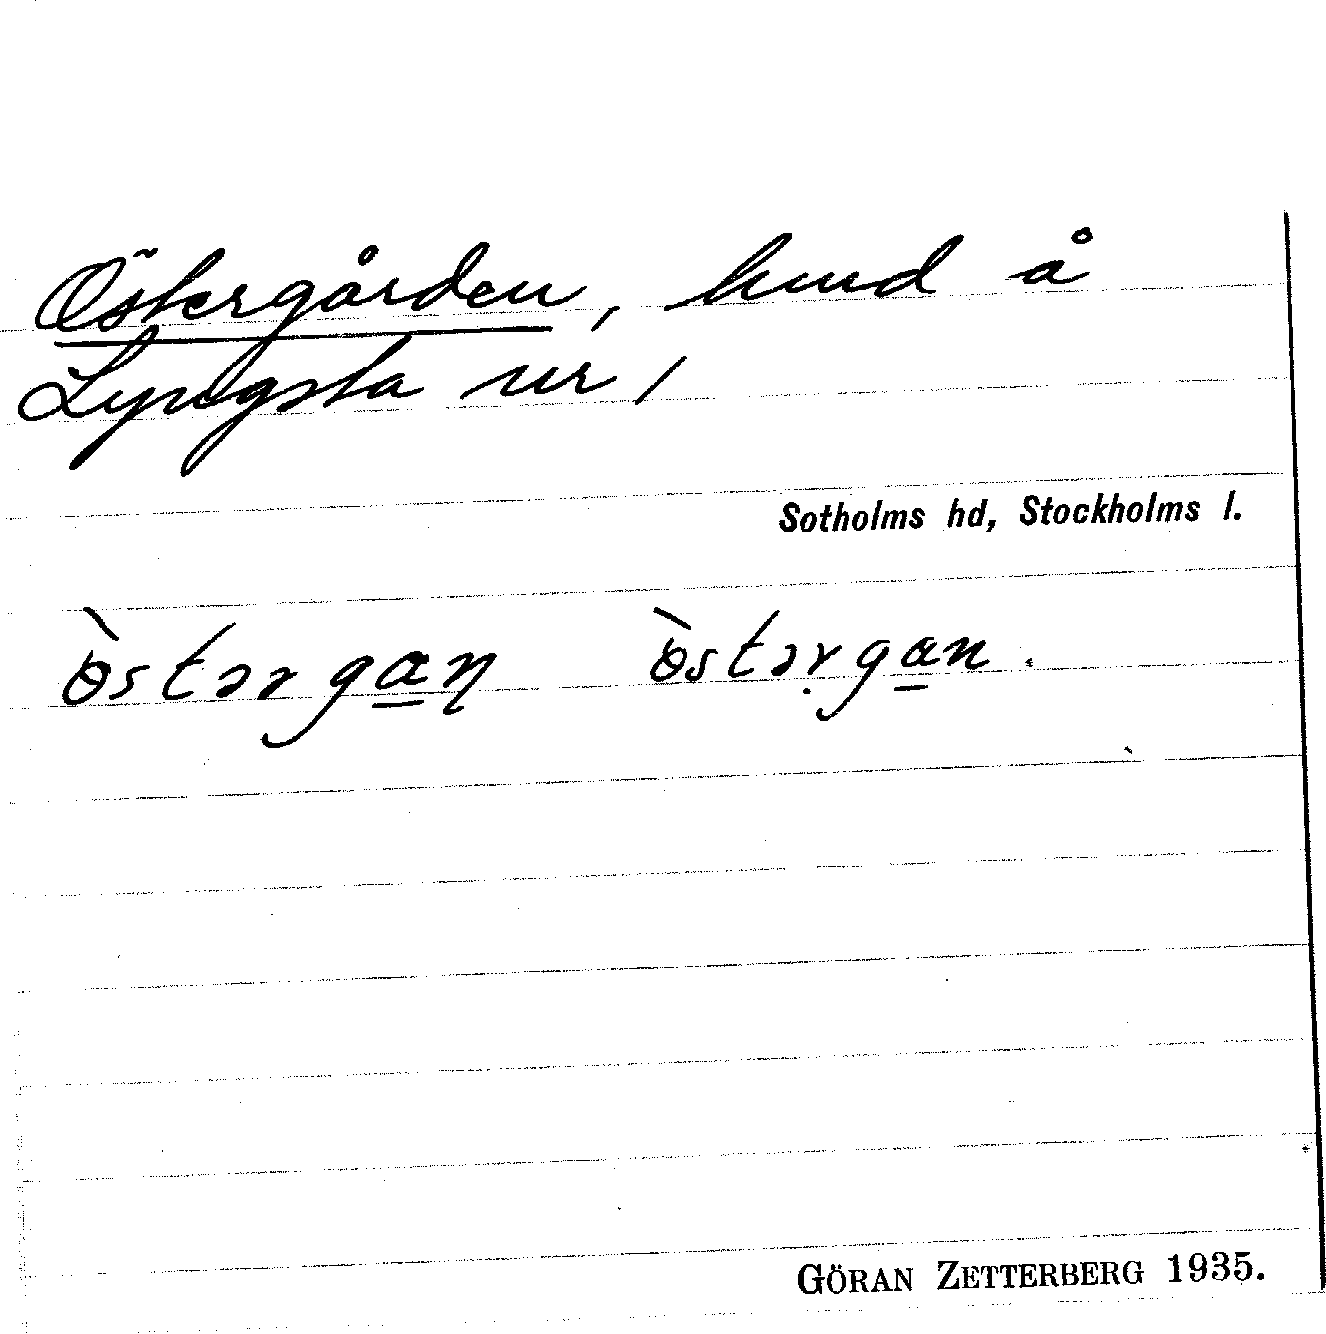 Östergården, hmd å
Lyngsta nr 1
Sotholms hd, Stockholms l.
ɵ̀stərgan̠ ɵ̀stərgan.
GÖRAN ZETTERBERG 1935.